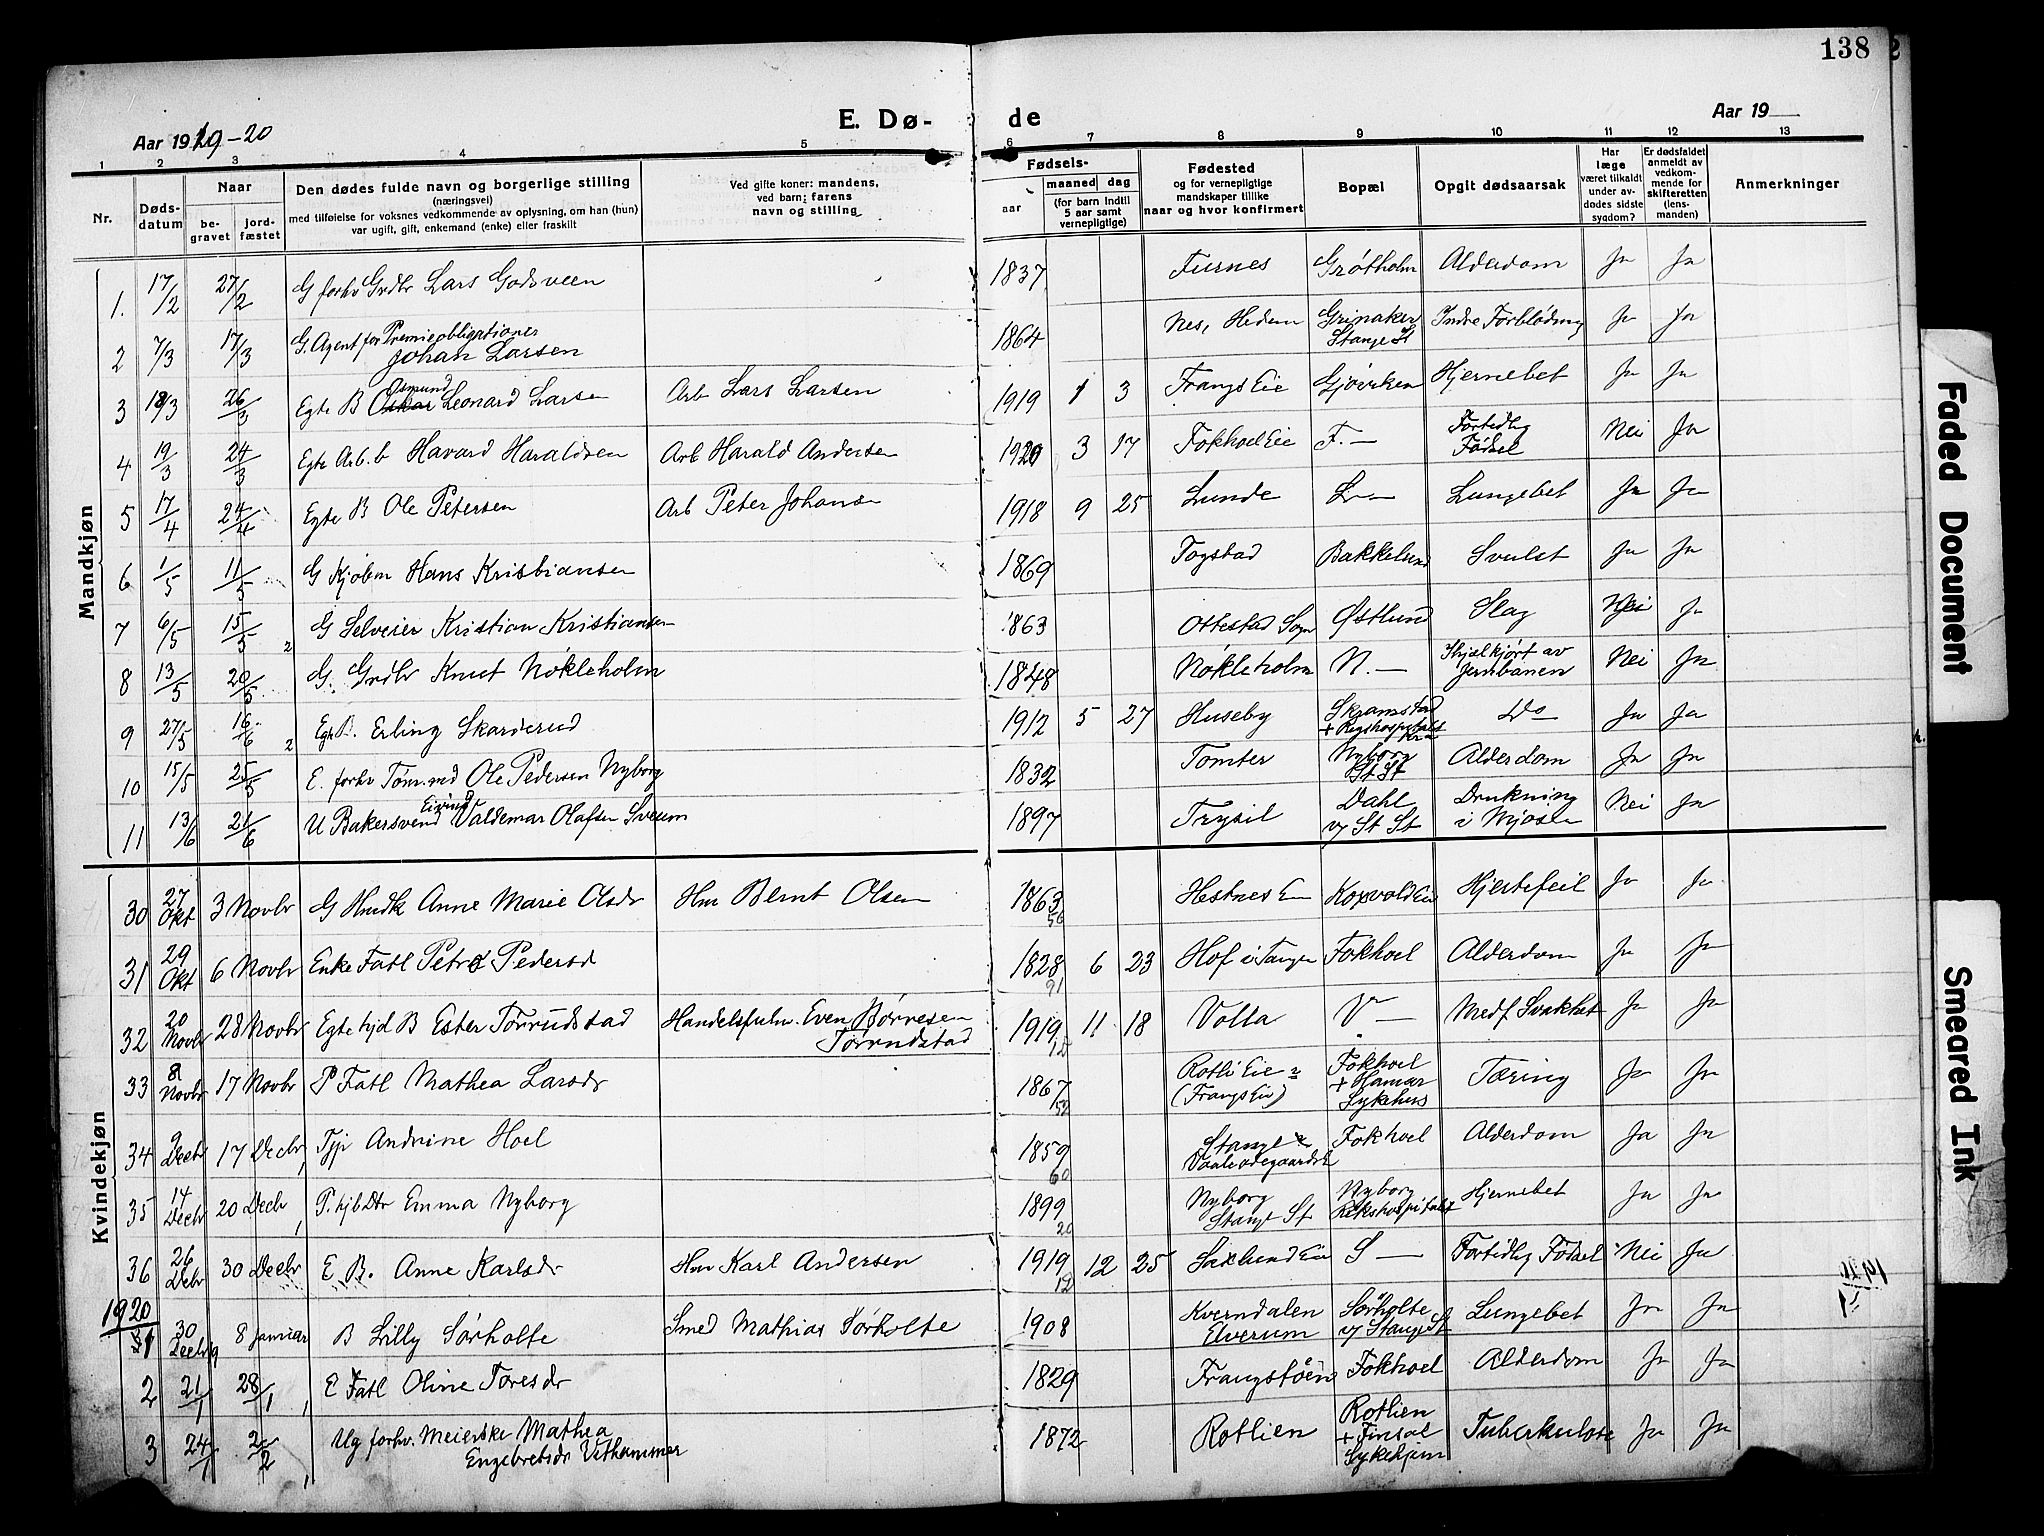 138
E. Dø- de
Aar 1919-20
Aar 19
1 2 3 4 5 6 7 8 9 10 11 12 13
Nr.
Døds-datum
Naar
be-gravet
jord-fæstet
Den dødes fulde navn og borgerlige stilling
(næringsvei)
med tilføielse for voksnes vedkommende av oplysning, om han (hun)
var ugift, gift, enkemand (enke) eller fraskilt
Ved gifte koner: mandens,
ved barn: farens
navn og stilling
Fødsels-
aar
maaned dag
(for barn indtil
5 aar samt
vernepligtige)
Fødested
og for vernepligtige
mandskaper tillike
naar og hvor konfirmert
Bopæl
Opgit dødsaarsak
Har
læge
været tilkaldt
under av-
dødes sidste
sygdom?
Er dødsfaldet
anmeldt av
vedkom-
mende for
skifteretten
(lens-
manden)
Anmerkninger
Mandkjøn
1. 17/2 27/2 G forhv Grdbr Lars Godsveen 1837 Furnes Grøtholm Alderdom Ja Ja
2 7/3 17/3 G. Agent for Premieobligationer Johan Larsen 1864 Nes, Hedem Grinaker Stange St Indre Forblødning Ja Ja
3 18/3 26/3 Egte B Oskar Osmund Leonard Larsen Arb Lars Larsen 1919 1 3 Frangs Eie Gjøvrken Hjernebet Ja Ja
4 19/3 24/3 Egte Arb. b Havard Haraldsen Arb Harald Andersen 1920 3 17 Fokhoel Eie F. — Fortidlig Fødsel Nei Ja
5 17/4 24/4 Egte B Ole Petersen Arb Peter Johansen 1918 9 25 Lunde L — Lungebet Ja Ja
6 1/5 11/5 G Kjøbm Hans Kristiansen 1869 Togstad Bakkelund Svulst Ja Ja
7 6/5 15/5 2 G Selveier Kristian Kristiansen 1863 Ottestad Sogn Østlund Slag Nei Ja
8 13/5 20/5 G. Grdbr Knut Nøkleholm 1848 Nøkleholm N. — Ihjelkjørt av Jernbanen Nei Ja
9 27/5 16/6 2 Egte B. Erling Skarderud 1912 5 27 Huseby Skramstad + Rigshospitalet Kra Do Ja Ja
10 15/5 25/5 E. forhv Tøm.md Ole Pedersen Nyborg 1832 Tomter Nyborg St St Alderdom Ja Ja
11 13/6 21/6 U Bakersvend Eivind Valdemar Olafsen Sveum 1897 Trysil Dahl v/ St St Drukning i Mjøsen Nei Ja
Kvindekjøn
30 27 Okt 3 Novbr G Hmdk Anne Marie Olsdr Hm Bernt Olsen 1863 56 Hestnes Eie Korsvold Eie Hjertefeil Ja Ja
31 29 Okt 6 Novbr Enke Fatl Petra Pedersd 1828 91 6 23 Hof i Tangen Fokhoel Alderdom Ja Ja
32 20 Novbr 28 Novbr Egte hjd B Ester Tørrudstad Handelsfulm. Even Børresen Tørrudstad 1919 12 11 18 Volla V — Medf Svakhet Ja Ja
33 8 Novbr 17 Novbr P Fatl Mathea Larsdr 1867 52 Rotli Eie (Frangs Eie) Fokhoel + Hamar Sykehus Tæring Ja Ja
34 9 Decbr 17 Decbr Tjp Andrine Hoel 1859 60 Stange Vaaleødegaards E Fokhoel Alderdom Ja Ja
35 14 Decbr 20 Decbr P. hjb Dtr Emma Nyborg 1899 20 Nyborg Stange St Nyborg Rikshospitalet Hjernebet Ja Ja
36 26 Decbr 30 Decbr E B. Anne Karlsdr Hm Karl Andersen 1919 12 12 25 Saxlund Eie S — Fortidlig Fødsel Nei Ja
1920
1 30 Decbr 19 8 Januar B Lilly Sørholte Smed Mathias Sørholte 1908 Kverndalen Elverum Sørholte v/ Stange St Lungebet Ja Ja
2 21/1 28/1 E Fatl Oline Toresdr 1829 Frangstøen Fokhoel Alderdom Ja Ja
3 24/1 2/2 Ug forhv. Meierske Mathea Engebretsdr Vethammer 1872 Rotlien Rotlien + Finsal Sykehjem Tuberkulose Ja Ja
Faded Document
Smeared Ink